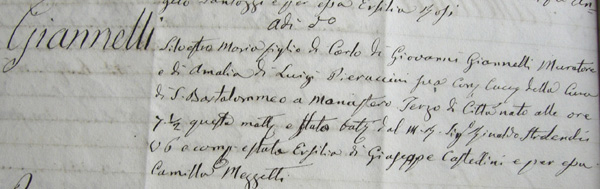 Ersilia Rosi
adi do
Giannelli
Silvestro Maria figlio di Carlo di Giovanni Giannelli Muratore
e di Amalia di Luigi Pieraccini sua Cons. Lucq. della Cura
di S. Bartolommeo a Monastero Terzo di Città nato alle ore
7 ½ questa matt. e stato batt. dal M. R. Sig. Rinaldo
e comp. e stata Ersilia di Giuseppe Castedini e per essa
Camilla Mezzetti.